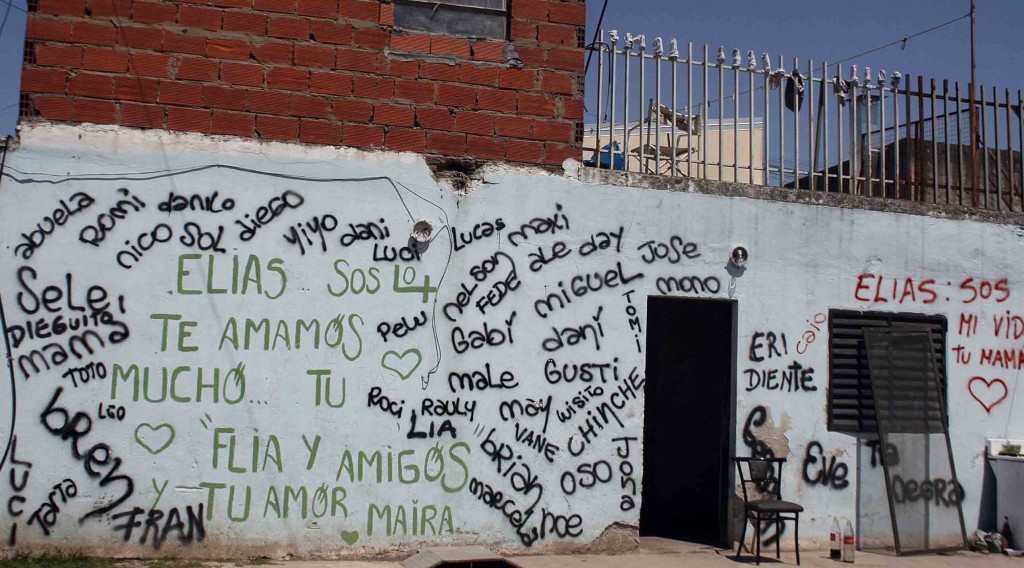 abuela
Romi
danilo
nico
Sol
diego
yiyo
dani
Luci
Lucas
maxi
ELIAS... SOS LO +
TE AMAMOS
MUCHO... TU
"FLIA Y AMIGOS"
Y TU AMOR MAIRA
Sele
DIEGUITO
mama
TOTO
LEO
bren
LUCI
Tamta
FRAN
Pelu
nelson
FEDE
ale
day
JOSE
mono
Gabi
miguel
TOMI
dani
male
GUSTI
Roci
Rauly
LIA
may
VANE
wisito
CHINCHE
brian
OSO
JOSA
marcel
noe
ERI
DIENTE
caio
Eve
Ta
negra
ELIAS: SOS
MI VID
TU MAMA